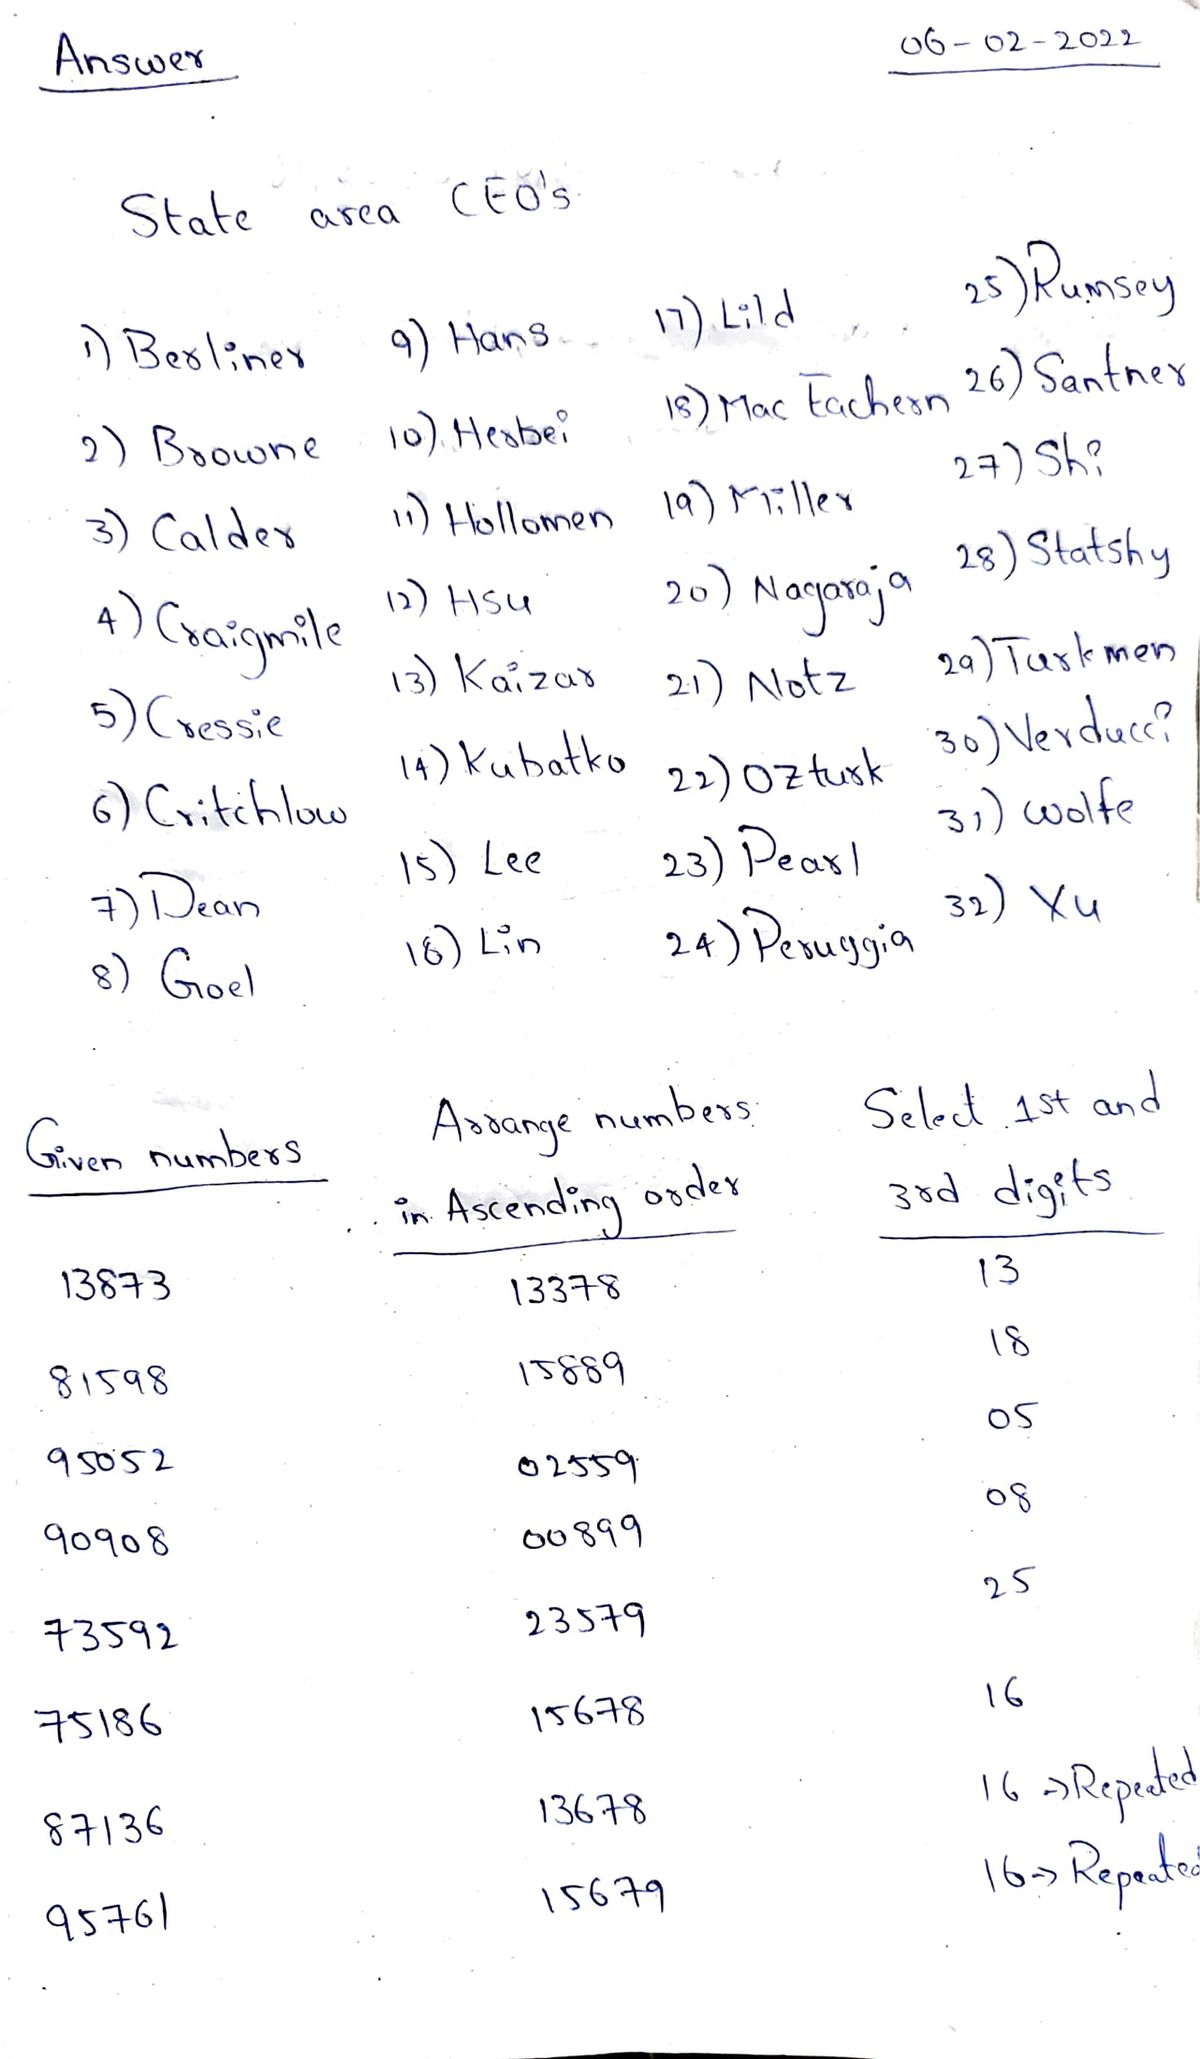 Answer
06-02-2022
State area CEO's
1) Berliner
2) Browne
3) Calder
4) Craigmile
5) Cressie
6) Critchlow
7) Dean
8) Goel
9) Hans
10) Herbei
11) Hollomen
12) HSu
13) Kaizar
14) Kubatko
15) Lee
16) Lin
17) Lild
18) Mac Eachern
19) Miller
20) Nagaraja
21) Notz
22) Ozturk
23) Pearl
24) Peruggia
25) Rumsey
26) Santner
27) Shi
28) Statshy
29) Turkmen
30) Verducci
31) wolfe
32) Xu
Given numbers
13873
81598
95052
90908
73592
75186
87136
95761
Arrange numbers
in Ascending order
13378
15889
02559
00899
23579
15678
13678
15679
Select 1st and
3rd digits
13
18
05
08
25
16
16 => Repeated
16 => Repeated